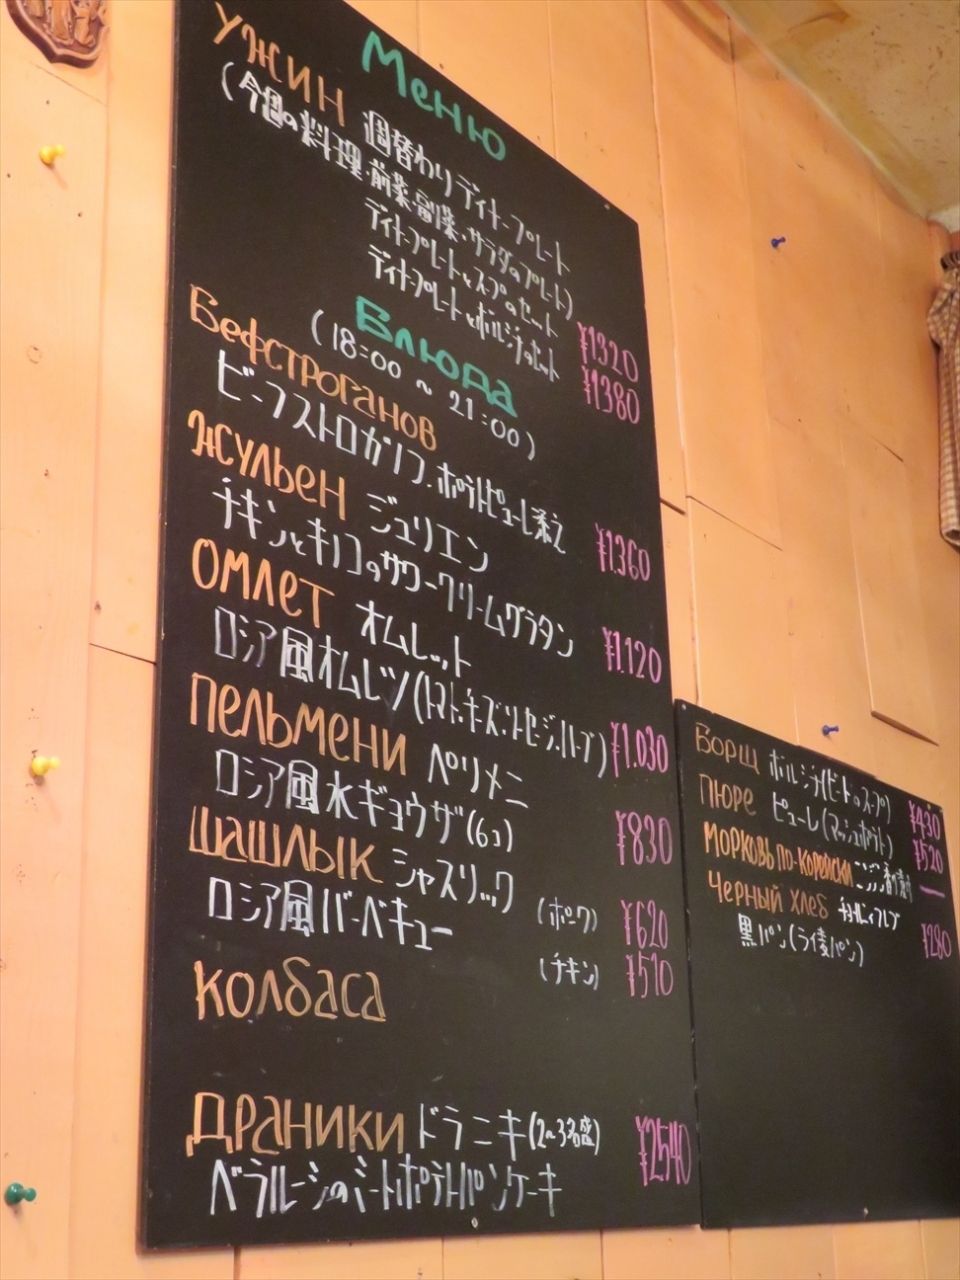 Меню
УЖИН 週替わりディナープレート
(今週の料理・前菜・副菜・サラダのプレート)
ディナープレートとスープのセット ¥1320
ディナープレートとボルシチのセット ¥1380
Блюда
(18:00 ~ 21:00)
Бефстроганов
ビーフストロガノフ、ポテトピューレ添え ¥1.360
Жульен ジュリエン
チキンとキノコのサワークリームグラタン ¥1.120
ОМЛЕТ オムレット
ロシア風オムレツ(トマト・チーズ・ソーセージ・ハーブ) ¥1.030
Пельмени ペリメニ
ロシア風水ギョウザ(6コ) ¥830
Шашлык シャスリック
ロシア風バーベキュー (ポーク) ¥620
(チキン) ¥510
Колбаса
Драники ドラニキ(2~3名盛)
ベラルーシのミートポテトパンケーキ ¥2540
Борщ ボルシチ(ビートのスープ) ¥430
Пюре ピューレ(マッシュポテト) ¥520
Морковь по-корейски
Черный хлеб
黒パン(ライ麦パン) ¥280